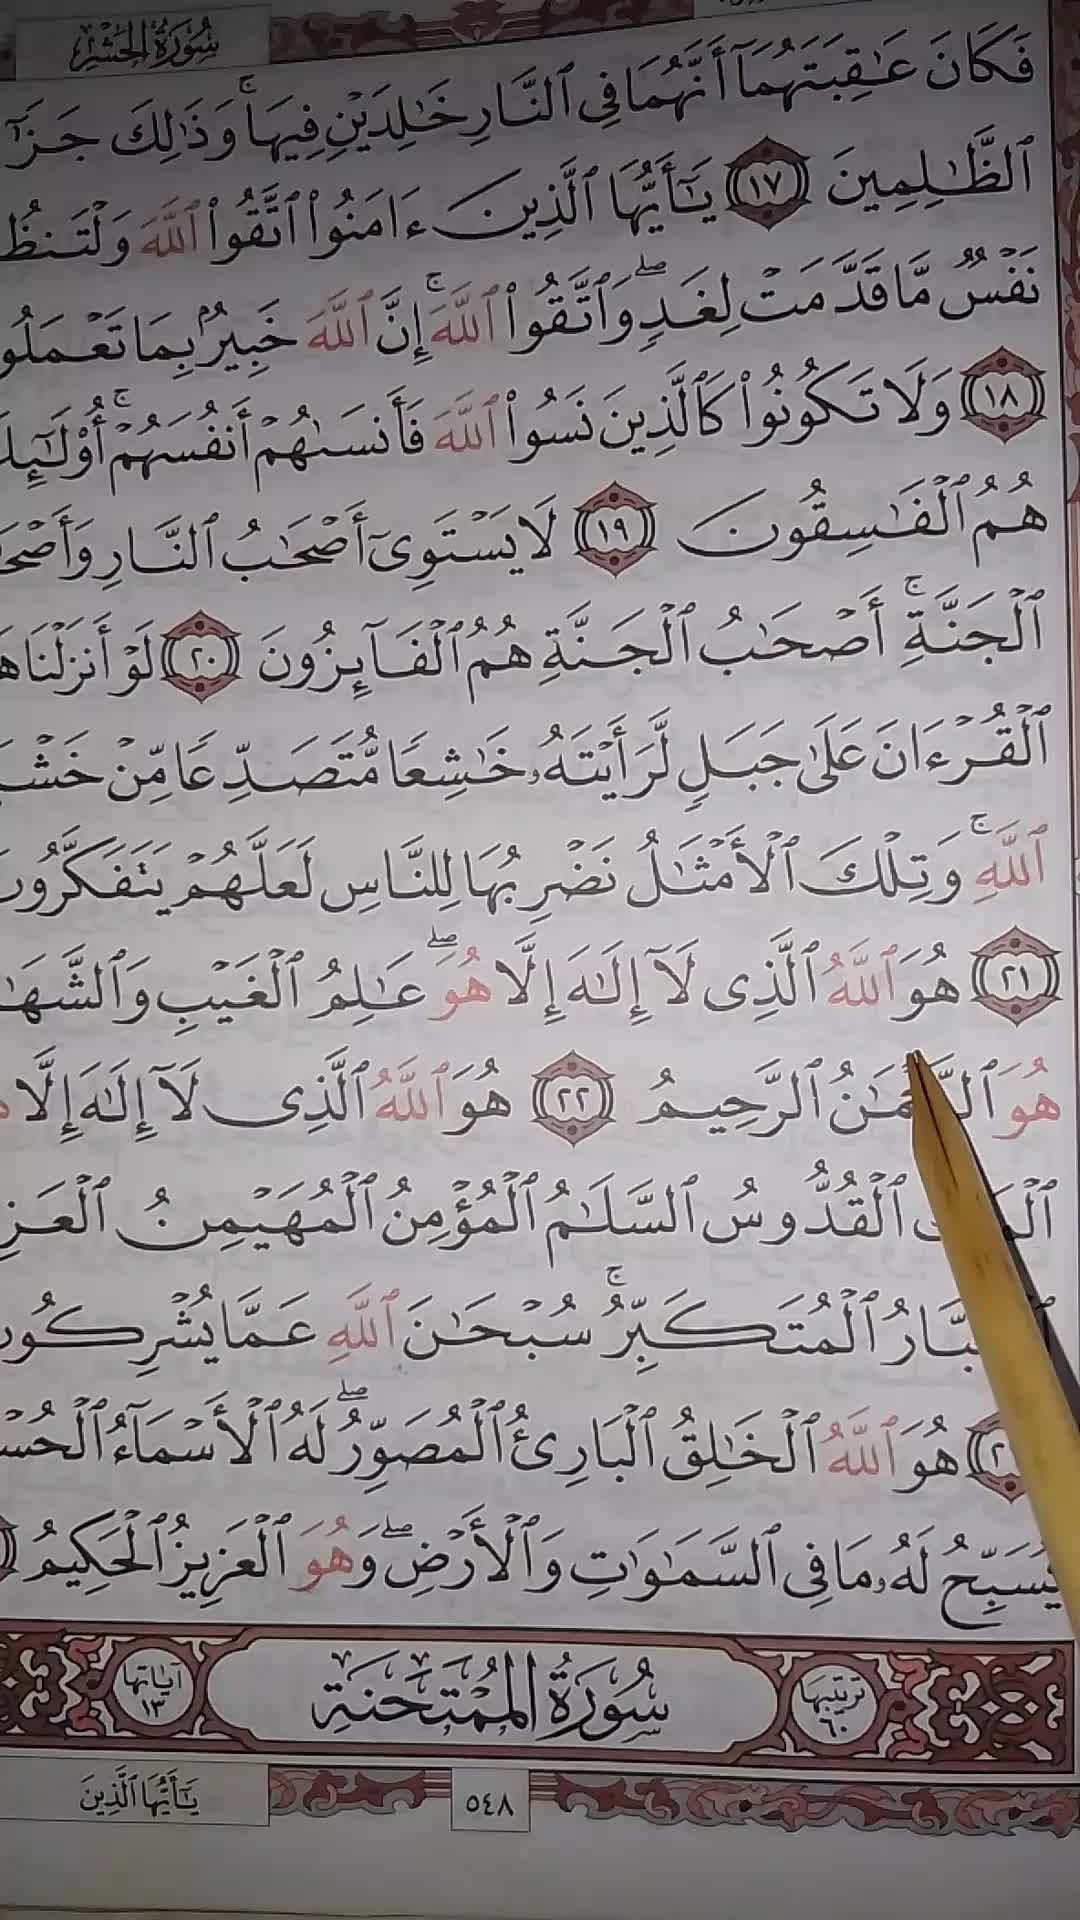 سُورَةُ الحَشْرِ
فَكَانَ عَٰقِبَتَهُمَآ أَنَّهُمَا فِي ٱلنَّارِ خَٰلِدَيْنِ فِيهَاۚ وَذَٰلِكَ جَزَٰٓ
ٱلظَّٰلِمِينَ ١٧ يَٰٓأَيُّهَا ٱلَّذِينَ ءَامَنُواْ ٱتَّقُواْ ٱللَّهَ وَلْتَنظُ
نَفْسٌ مَّا قَدَّمَتْ لِغَدٍۖ وَٱتَّقُواْ ٱللَّهَۚ إِنَّ ٱللَّهَ خَبِيرُۢ بِمَا تَعْمَلُو
١٨ وَلَا تَكُونُواْ كَٱلَّذِينَ نَسُواْ ٱللَّهَ فَأَنسَىٰهُمْ أَنفُسَهُمْۚ أُوْلَٰٓئِكَ
هُمُ ٱلْفَٰسِقُونَ ١٩ لَا يَسْتَوِيٓ أَصْحَٰبُ ٱلنَّارِ وَأَصْحَا
ٱلْجَنَّةِۚ أَصْحَٰبُ ٱلْجَنَّةِ هُمُ ٱلْفَآئِزُونَ ٢٠ لَوْ أَنزَلْنَا هَ
ٱلْقُرْءَانَ عَلَىٰ جَبَلٍ لَّرَأَيْتَهُۥ خَٰشِعًا مُّتَصَدِّعًا مِّنْ خَشْيَ
ٱللَّهِۚ وَتِلْكَ ٱلْأَمْثَٰلُ نَضْرِبُهَا لِلنَّاسِ لَعَلَّهُمْ يَتَفَكَّرُونَ
٢١ هُوَ ٱللَّهُ ٱلَّذِي لَآ إِلَٰهَ إِلَّا هُوَۖ عَٰلِمُ ٱلْغَيْبِ وَٱلشَّهَٰ
هُوَ ٱلرَّحْمَٰنُ ٱلرَّحِيمُ ٢٢ هُوَ ٱللَّهُ ٱلَّذِي لَآ إِلَٰهَ إِلَّا ه
ٱلْمَلِكُ ٱلْقُدُّوسُ ٱلسَّلَٰمُ ٱلْمُؤْمِنُ ٱلْمُهَيْمِنُ ٱلْعَزِ
ٱلْجَبَّارُ ٱلْمُتَكَبِّرُۚ سُبْحَٰنَ ٱللَّهِ عَمَّا يُشْرِكُون
هُوَ ٱللَّهُ ٱلْخَٰلِقُ ٱلْبَارِئُ ٱلْمُصَوِّرُۖ لَهُ ٱلْأَسْمَآءُ ٱلْحُسْ
يُسَبِّحُ لَهُۥ مَا فِي ٱلسَّمَٰوَٰتِ وَٱلْأَرْضِۖ وَهُوَ ٱلْعَزِيزُ ٱلْحَكِيمُ
ترتيبها ٦٠ سُورَةُ المُمْتَحَنَةِ آياتها ١٣
٥٤٨ يَٰٓأَيُّهَا ٱلَّذِينَ